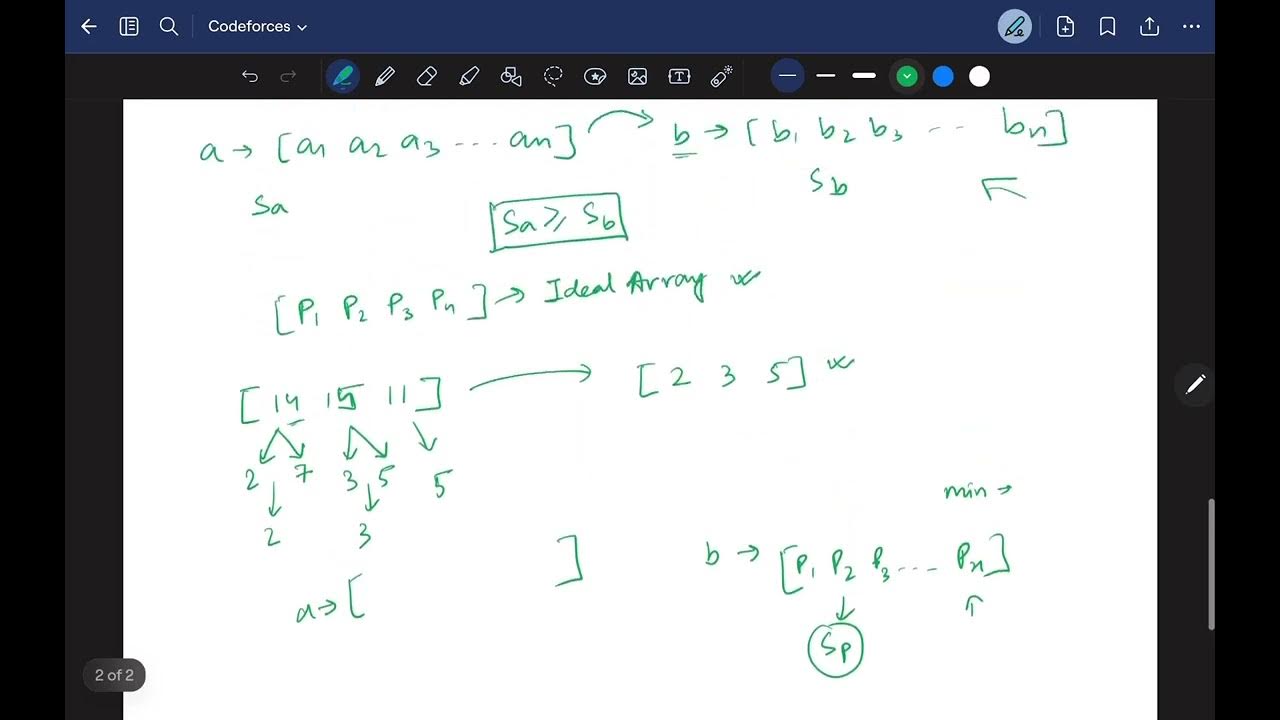 Codeforces
a → [a1 a2 a3 ... an] b → [b1 b2 b3 ... bn]
Sa Sb
Sa ≥ Sb
[P1 P2 P3 Pn] → Ideal Array
[14 15 11] → [2 3 5]
2 7 3 5 5
2 3
min →
a → [ ] b → [P1 P2 P3 ... Pn]
Sp
2 of 2